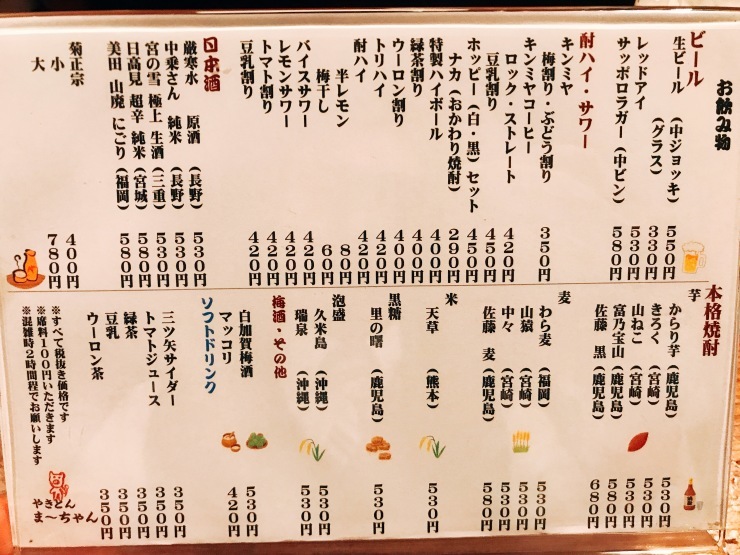 お飲み物
ビール
生ビール (中ジョッキ) 550円
(グラス) 330円
レッドアイ 530円
サッポロラガー (中ビン) 580円
酎ハイ・サワー
キンミヤ
梅割り・ぶどう割り 350円
キンミヤコーヒー
ロック・ストレート 420円
豆乳割り 450円
ホッピー (白・黒) セット 450円
ナカ (おかわり焼酎) 290円
特製ハイボール 400円
緑茶割り 400円
ウーロン割り 400円
トリハイ 420円
酎ハイ 420円
半レモン 80円
梅干し 60円
バイスサワー 420円
レモンサワー 420円
トマト割り 420円
豆乳割り 420円
日本酒
厳寒水 原酒 (長野) 530円
中乗さん 純米 (長野) 530円
宮の雪 極上 生酒 (三重) 530円
日高見 超辛 純米 (宮城) 580円
美田 山廃 にごり (福岡) 580円
菊正宗
小 400円
大 780円
本格焼酎
芋
からり芋 (鹿児島) 530円
きろく (宮崎) 530円
山ねこ (宮崎) 530円
富乃宝山 (鹿児島) 580円
佐藤 黒 (鹿児島) 680円
麦
わら麦 (福岡) 530円
山猿 (宮崎) 530円
中々 (宮崎) 530円
佐藤 麦 (鹿児島) 580円
米
天草 (熊本) 530円
黒糖
里の曙 (鹿児島) 530円
泡盛
久米島 (沖縄) 530円
瑞泉 (沖縄) 530円
梅酒・その他
白加賀梅酒 530円
マッコリ 420円
ソフトドリンク
三ツ矢サイダー 350円
トマトジュース 350円
緑茶 350円
豆乳 350円
ウーロン茶 350円
※すべて税抜き価格です
※席料100円いただきます
※混雑時2時間程でお願いします
やきとん
ま〜ちゃん